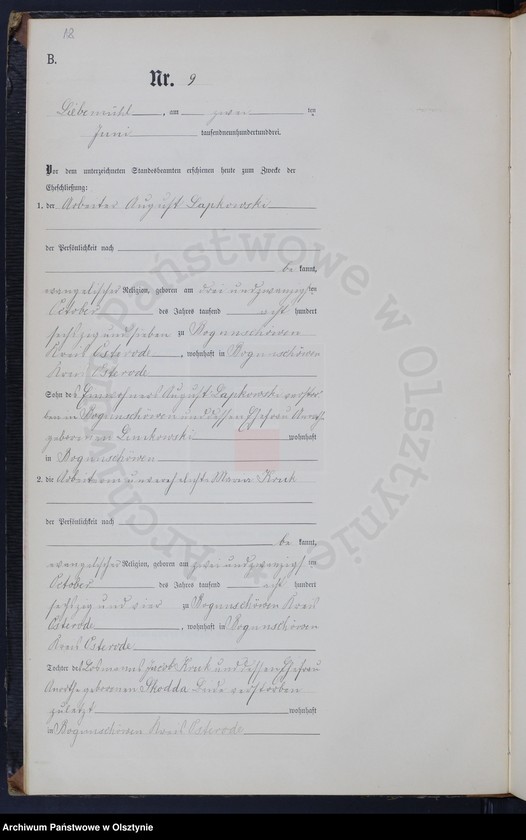 18
B.
Nr. 9
Liebemühl, am zwei ten
Juni tausendneunhundertunddrei.
Vor dem unterzeichneten Standesbeamten erschienen heute zum Zwecke der
Eheschließung:
1. der Arbeiter August Lapkowski
der Persönlichkeit nach
be kannt,
evangelischer Religion, geboren am drei und zwanzigsten
October des Jahres tausend acht hundert
sechszig und sieben zu Bogunschöwen
Kreis Osterode, wohnhaft in Bogunschöwen
Kreis Osterode
Sohn des Einwohners August Lapkowski verstor-
ben in Bogunschöwen und dessen Ehefrau
geborenen Linkowski wohnhaft
in Bogunschöwen
2. die Arbeiterin unverehelichte Maria Kruk
der Persönlichkeit nach
be kannt,
evangelischer Religion, geboren am zwei und zwanzigsten
October des Jahres tausend acht hundert
sechszig und vier zu Bogunschöwen Kreis
Osterode, wohnhaft in Bogunschöwen
Kreis Osterode
Tochter des Losmanns Jacob Kruk und dessen Ehefrau
Dorothe geborenen Skodda beide verstorben
zuletzt wohnhaft
in Bogunschöwen Kreis Osterode
Archiwum Państwowe w Olsztynie
Archiwum Państwowe w Olsztynie